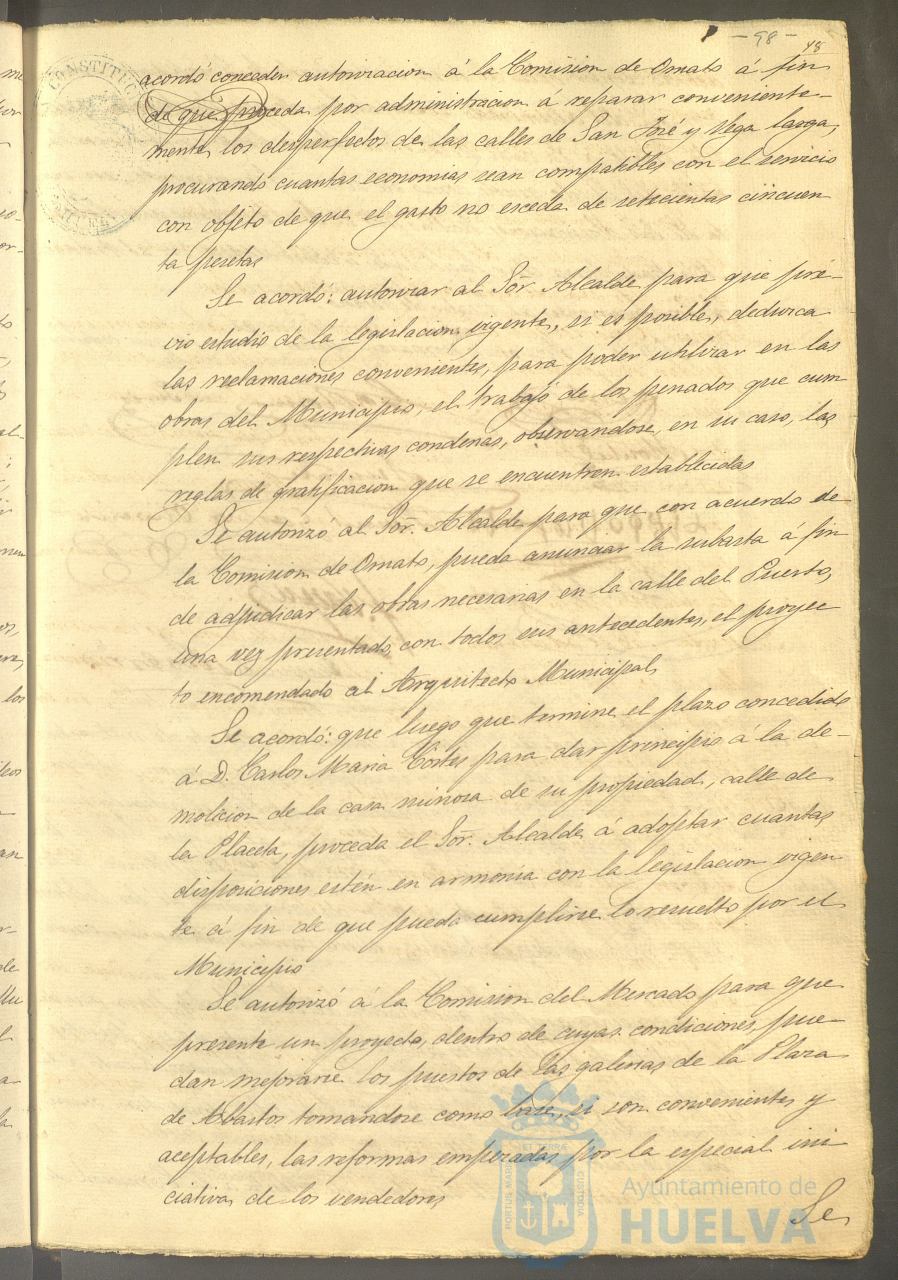 - 98 -
48
acordó conceder autorizacion á la Comision de Ornato á fin
de que proceda por administracion á reparar conveniente-
mente los desperfectos de las calles de San José y Vega larga,
procurando cuantas economias sean compatibles con el servicio
con objeto de que el gasto no esceda de setecientas cincuen
ta pesetas
Se acordó: autorizar al Sor. Alcalde para que pré-
vio estudio de la legislacion vigente, si es posible, deduzca
las reclamaciones convenientes, para poder utilizar en las
obras del Municipio, el trabajo de los penados que cum
plen sus respectivas condenas, observandose, en su caso, las
reglas de gratificacion que se encuentren establecidas
Se autorizó al Sor. Alcalde para que con acuerdo de
la Comision de Ornato, pueda anunciar la subasta á fin
de adjudicar las obras necesarias en la calle del Puerto,
una vez presentado, con todos sus antecedentes, el proyec
to encomendado al Arquitecto Municipal
Se acordó: que luego que termine el plazo concedido
á D. Carlos Maria Cortes para dar principio á la de-
molicion de la casa ruinosa de su propiedad, calle de
la Placeta, proceda el Sor. Alcalde á adoptar cuantas
disposiciones estén en armonia con la legislacion vigen
te á fin de que pueda cumplirse lo resuelto por el
Municipio
Se autorizó á la Comision del Mercado para que
presente un proyecto, dentro de cuyas condiciones, pue-
dan mejorarse los puestos de las galerias de la Plaza
de Abastos tomandose como base, si son convenientes y
aceptables, las reformas empezadas por la especial ini
ciativa de los vendedores
Se
Ayuntamiento de
HUELVA